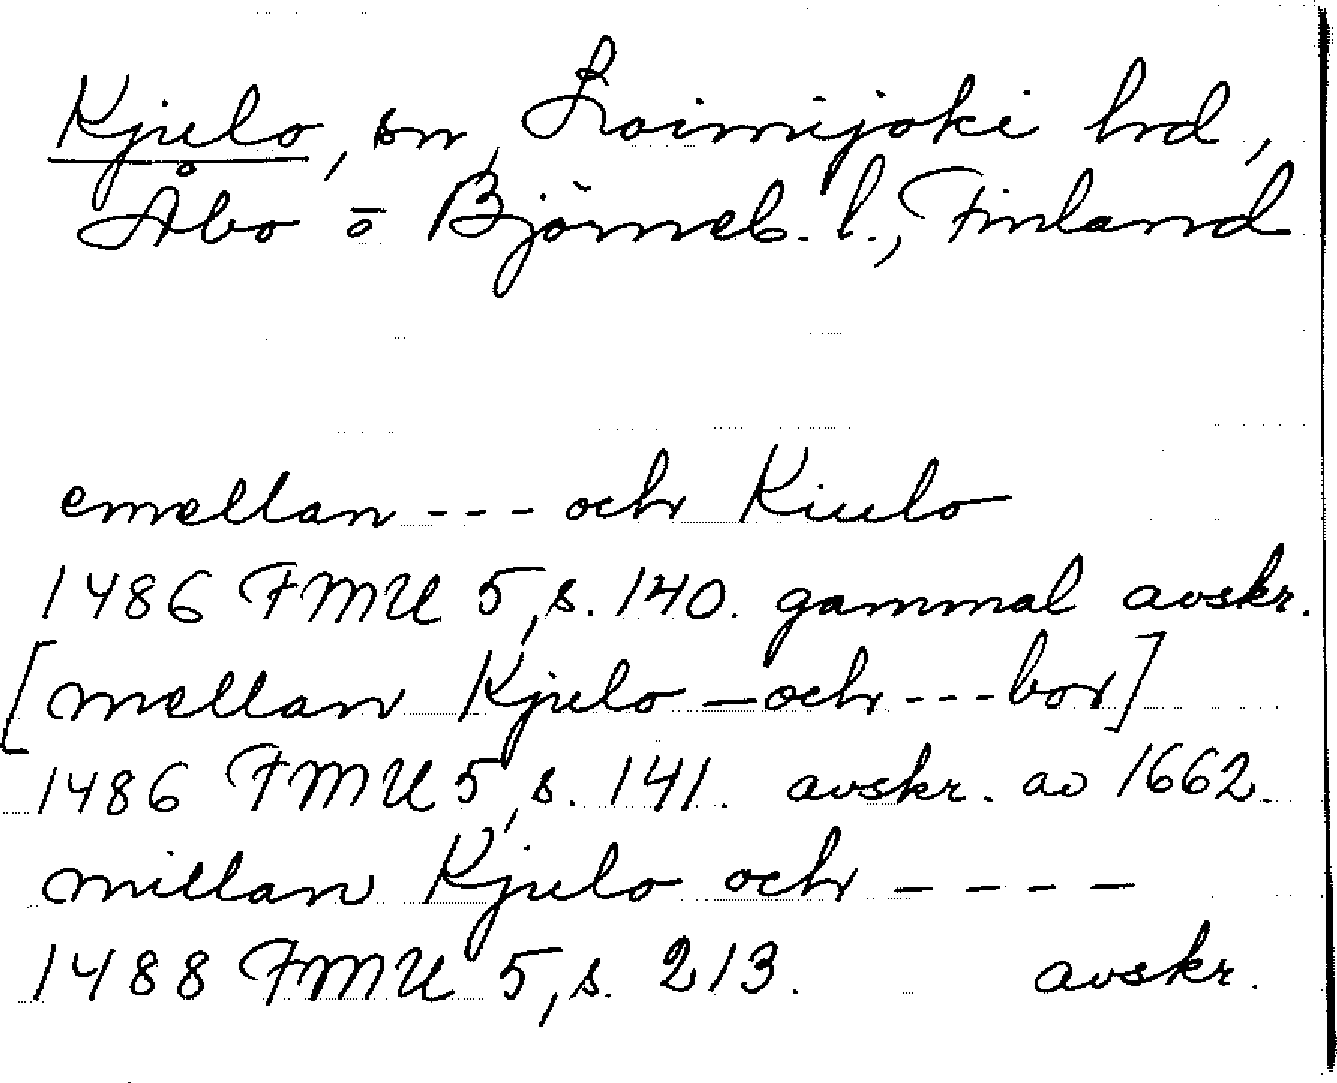 Kjulo, sn, Loimijoki hd,
Åbo o Björneb. l., Finland
emellan --- och Kiulo
1486 FMU 5, s. 140. gammal avskr.
[mellan Kjulo – och --- bor]
1486 FMU 5, s. 141. avskr. av 1662.
millan Kjulo och ----
1488 FMU 5, s. 213. avskr.